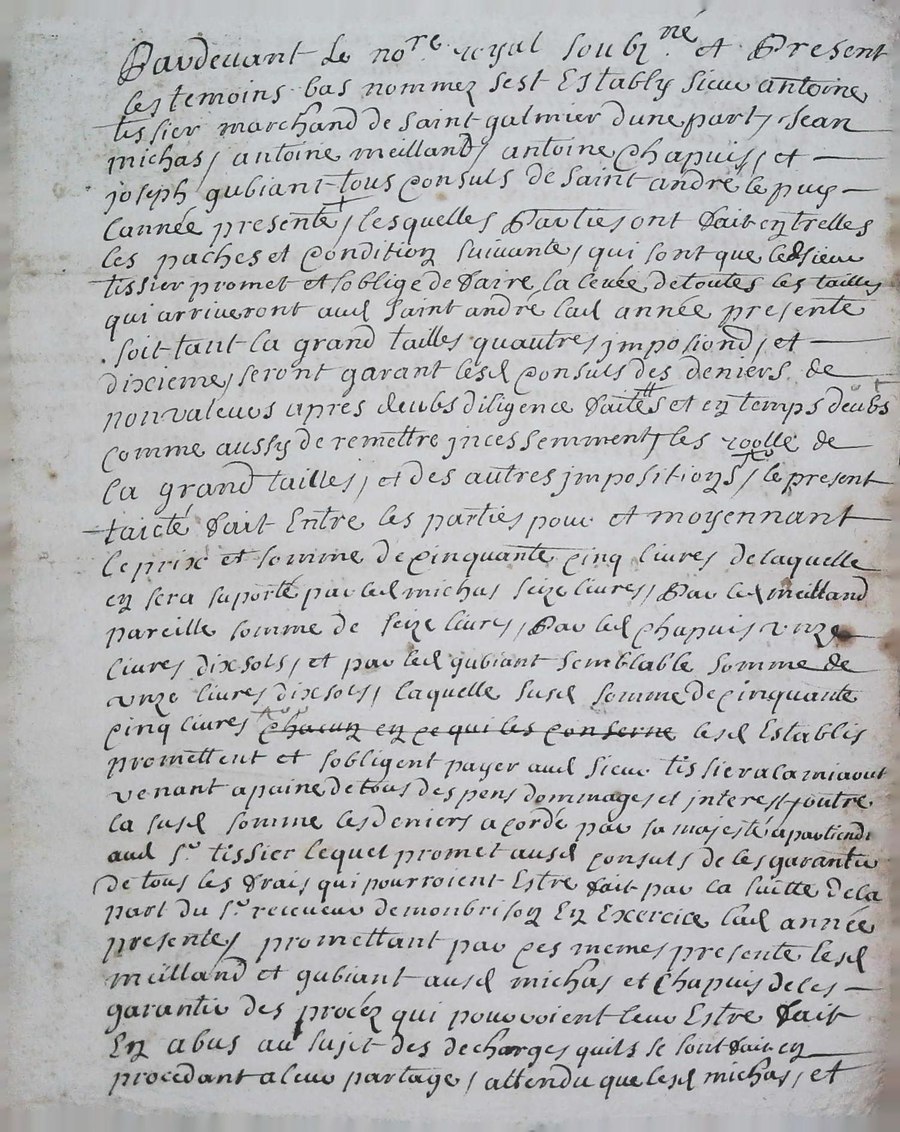 Pardevant Le no.re royal soubz.né et Present
les temoins bas nommez sest Establÿ sieur antoine
tissier marchand de saint galmier dune part, Jean
michas, antoine meilland, antoine chapuis, et
joseph gubiant tous Consuls de saint andré le puy
Lannée presente, lesquelles Parties ont fait entrelles
les paches et Condition suivante, qui sont que led sieur
tissier promet et soblige de faire la levée de toutes les tailles
qui arriveront aud saint andré lad année presente
soit tant la grand tailles quautres impositiond, et
dixieme, seront garant lesd Consuls des deniers de
nonvaleurs apres deubs diligence faites et en temps deubs
Comme aussy de remettre incessemment, les roolle de
la grand tailles, et des autres impositions, le present
taicté fait Entre les parties pour et moyennant
le prix et somme de Cinquante Cinq livres de laquelle
en sera suporté par led michas seize livres, Par led meilland
pareille somme de seize livres, Par led Chapuis unze
livres dix sols, et par led gubiant semblable somme de
unze livres dix sols, laquelle susd somme de Cinquante
Cinq livres Chacun en Ce qui les Conserne lesd Establis
promettent et sobligent payer aud sieur tissier a la miaout
venant a paine de tous despens dommages et interest, outre
la susd somme les deniers acordé par sa majesté apartiendr
aud sr. tissier lequel promet ausd Consuls de les garantir
de tous les frais qui pourroient Estre fait par la suitte de la
part du sr. receveur de monbrison En Exercice lad année
presente, promettant par Ces memes presente lesd
meilland et gubiant ausd michas et Chapuis de les
garantir des procéz qui pourroient leur Estre fait
En abus au sujet des decharges quils se sont fait en
procedant a leur partage, attendu que lesd michas, et